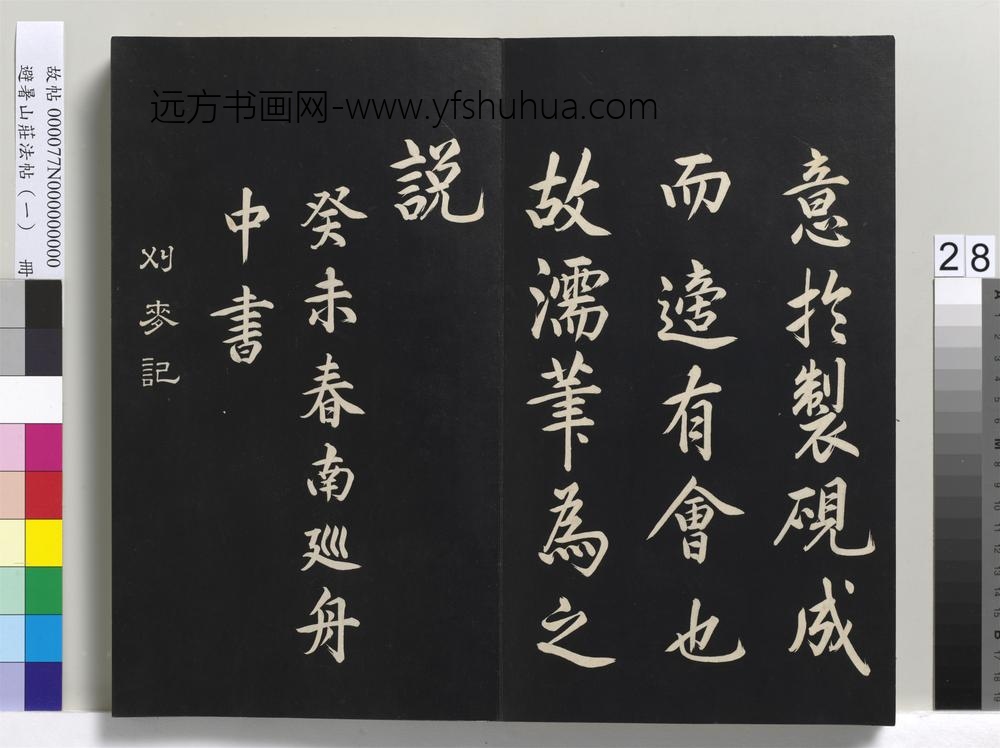 意於製硯成
而遊有會也
故濡筆為之
説
癸未春南廵舟
中書
刈麥記
远方书画网-www.yfshuhua.com
故帖 000077N000000000
避暑山莊法帖（一） 冊
28